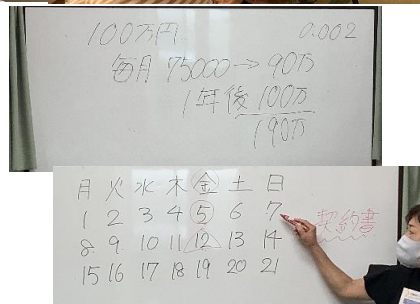 100万円 0.002
毎月 75000→90万
1年後 100万
190万
月 火 水 木 金 土 日
1 2 3 4 5 6 7
契約書
8 9 10 11 12 13 14
15 16 17 18 19 20 21